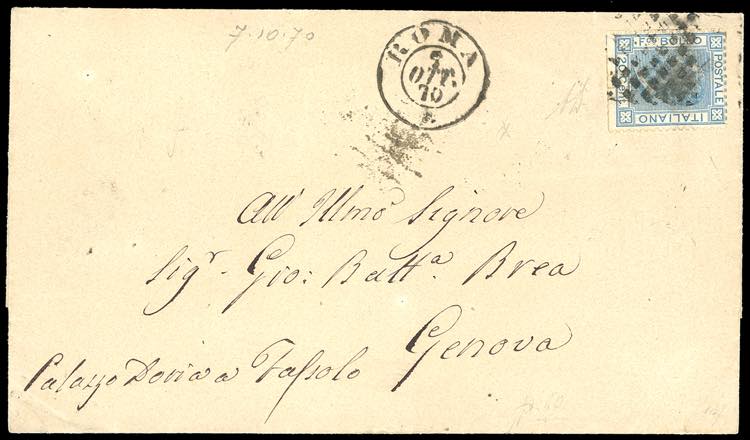 7.10.70
ROMA
7
OTT.
70
FCO BOLLO
POSTALE
ITALIANO
20 CENT
All' Illmo Signore
Sigr. Gio: Batta. Brea
Genova
Palazzo Doria a Fassolo